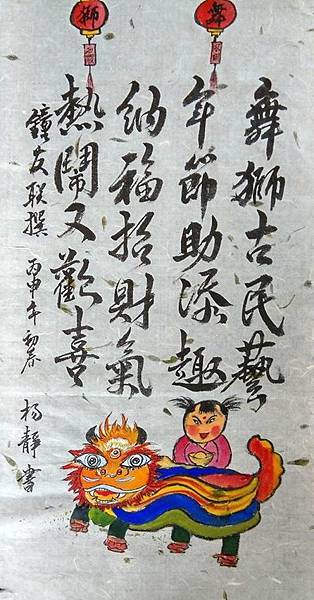 舞獅
舞獅古民藝
年節助添趣
納福招財氣
熱鬧又歡喜
鐘友联撰 丙申年初春 楊靜書